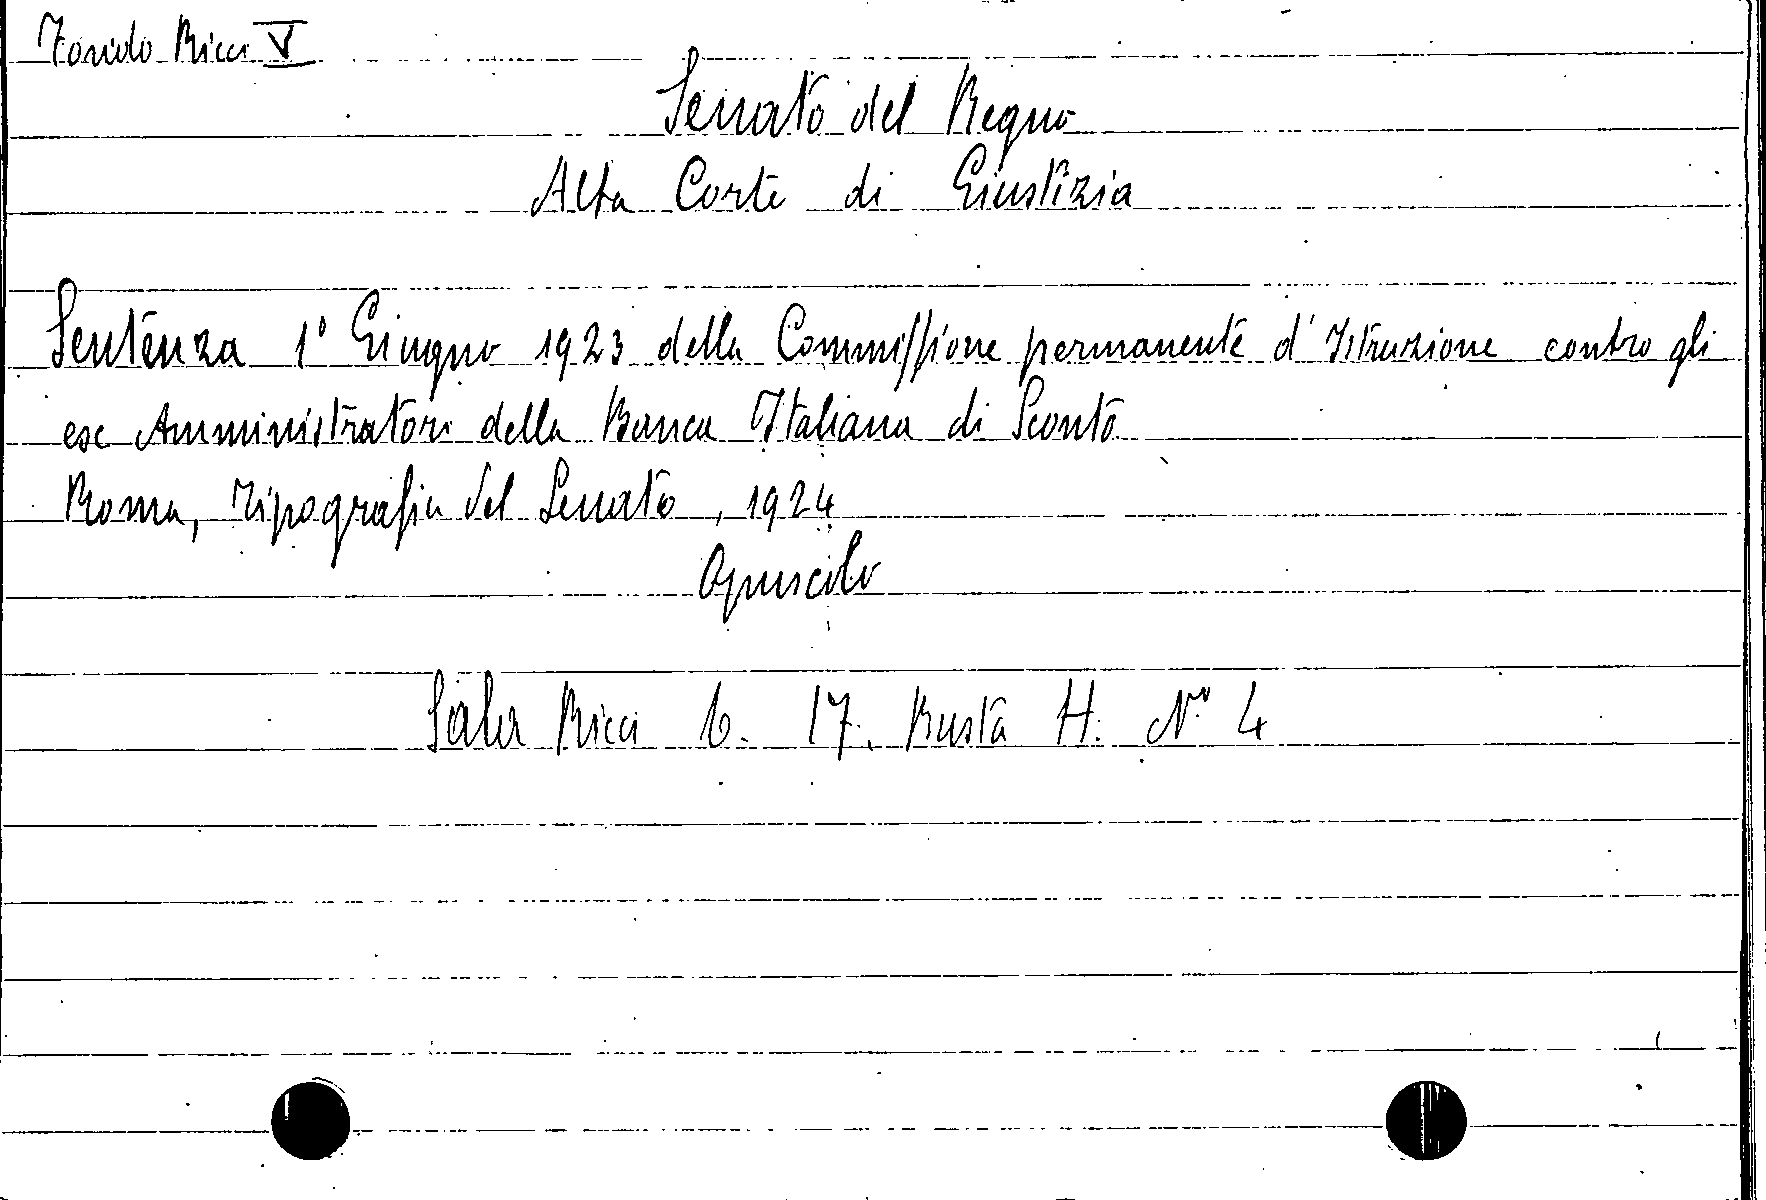 Fondo Ricci V
Senato del Regno
Alta Corte di Giustizia
Sentenza 1° Giugno 1923 della Commissione permanente d'Istruzione contro gli
ex Amministratori della Banca Italiana di Sconto
Roma, Tipografia del Senato, 1924
Opuscolo
Sala Ricci 6. 17. Busta H. N° 4